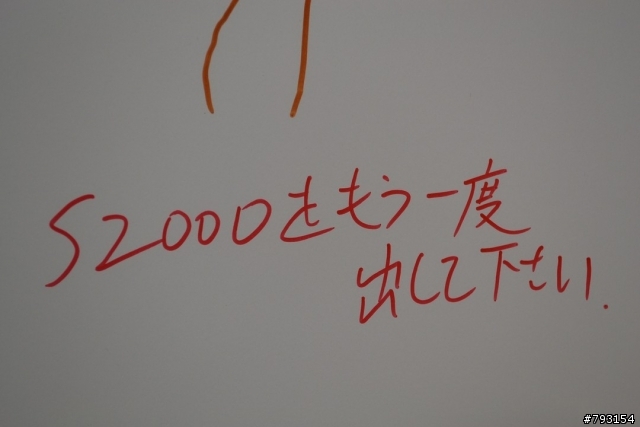 S2000をもう一度
出して下さい.
#793154